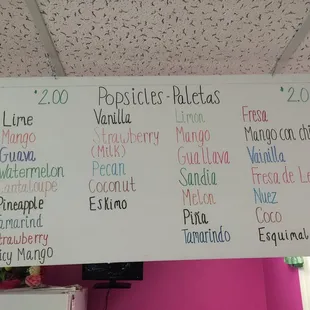 $2.00 Popsicles-Paletas $2.0
Lime
Mango
Guava
Watermelon
Cantaloupe
Pineapple
Tamarind
Strawberry
icy Mango
Vanilla
Strawberry
(Milk)
Pecan
Coconut
Eskimo
Limon
Mango
Guallava
Sandia
Melon
Piña
Tamarindo
Fresa
Mango con chi
Vainilla
Fresa de Le
Nuez
Coco
Esquimal